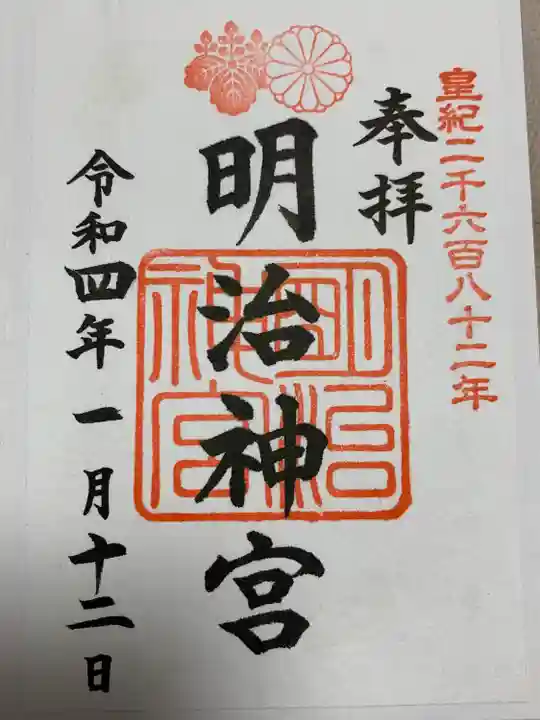 皇紀二千六百八十二年
奉拝
明治神宮
明治神宮
令和四年一月十二日